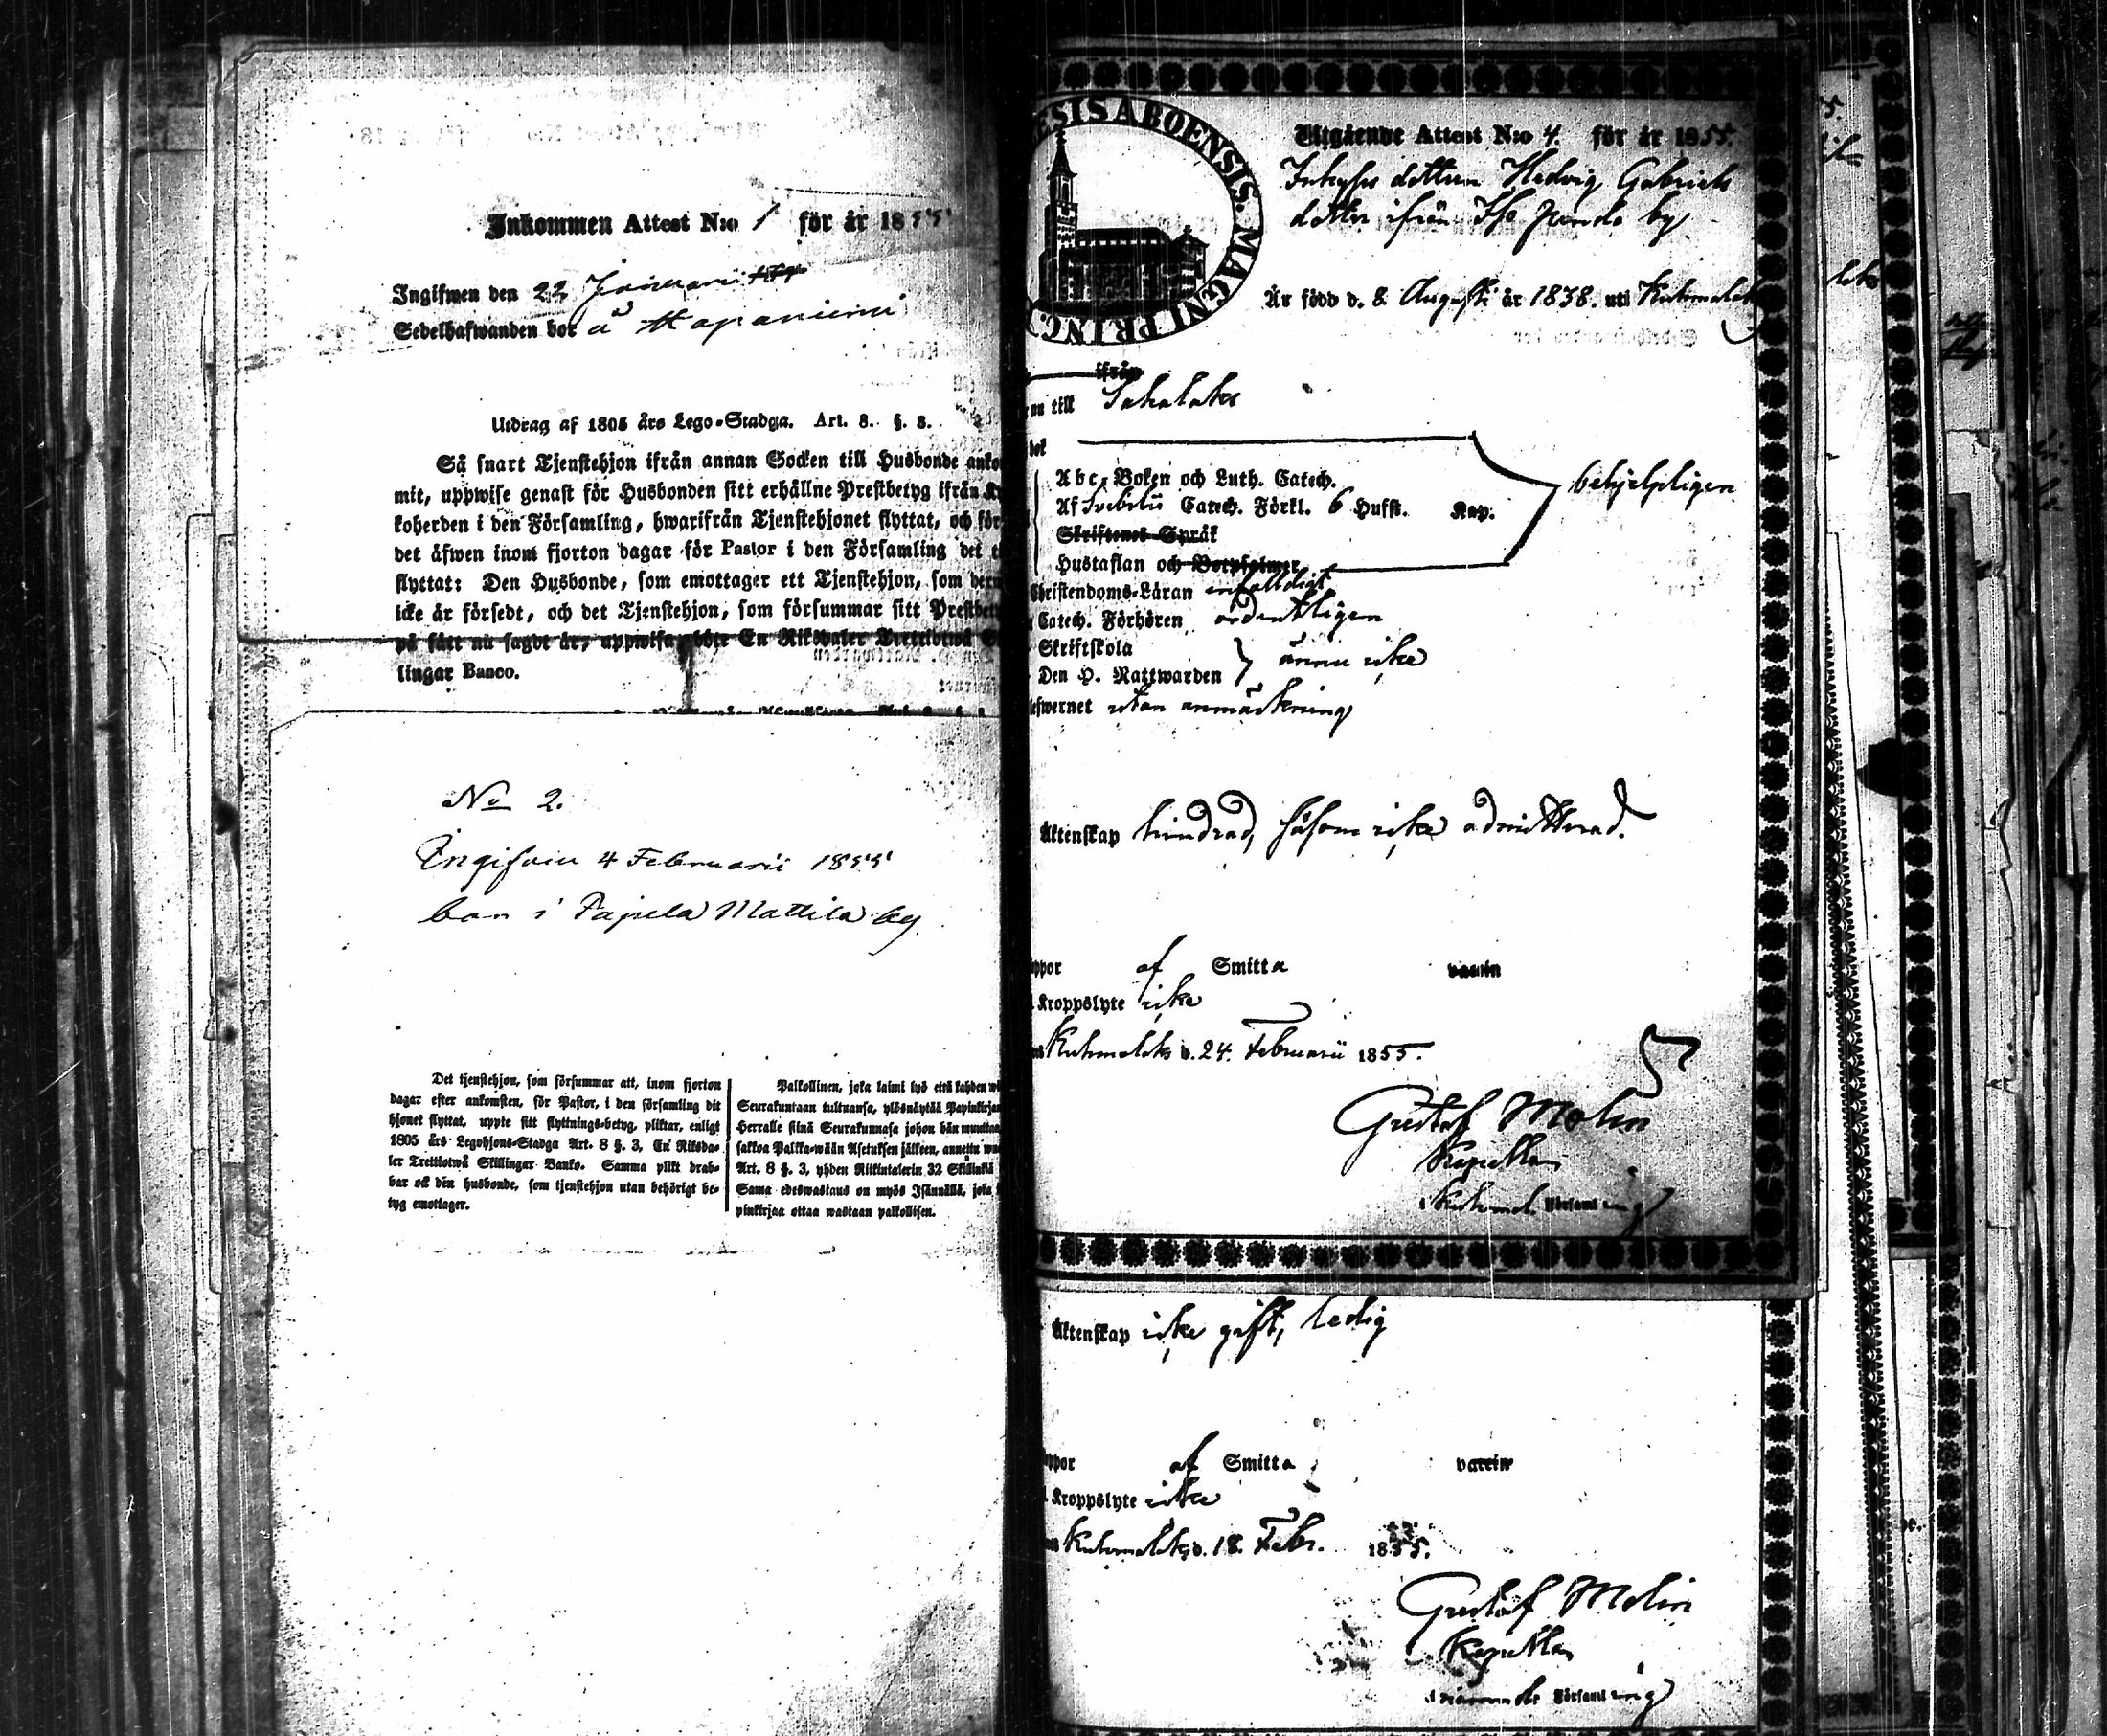 Inkommen Attest N:o 1 för år 1855
Ingifwen den 22 Januarii
Sedelhafwanden bor å Haponiemi
Utdrag af 1805 års Lego-Stadga. Art. 8. §. 3.
Så snart Tjenstehjon ifrån annan Socken till Husbonde anko
mit, uppwise genast för Husbonden sitt erhållne Prestbetyg ifrån Ky
koherden i den Församling, hwarifrån Tjenstehjonet flyttat, och för
det äfwen inom fjorton dagar för Pastor i den Församling det t
flyttat: Den Husbonde, som emottager ett Tjenstehjon, som derm
icke är försedt, och det Tjenstehjon, som försummar sitt Prestbet
på sätt nu sagdt är, uppwisa, böte En Riksdaler Trettiotwå S
lingar Banco.
No 2.
Ingifven 4 Februarii 1855
bor i Pajula Mattila by
Det tjenstehjon, som försummar att, inom fjorton
dagar efter ankomsten, för Pastor, i den församling dit
hjonet flyttat, uppte sitt flyttnings-betyg, pliktar, enligt
1805 års Legohjons-Stadga Art. 8 §. 3, En Riksda-
ler Trettiotwå Skillingar Banko. Samma plikt drab-
bar ock den husbonde, som tjenstehjon utan behörigt be-
tyg emottager.
Palkollinen, joka laimi lyö että kahden wi
Seurakuntaan tultuansa, ylösnäyttää Papinkirjan
Herralle siinä Seurakunnasa johon hän muuttaa
sakkoa Palkka-wään Asetuksen jälkeen, annettu wu
Art. 8 §. 3, yhden Riikintalerin 32 Skillinkiä
Sama edeswastaus on myös Isännällä, joka
pinkirjaa ottaa wastaan palkollisen.
ESIS ABOENSIS. MAGNI PRINC.
Utgående Attest N:o 4. för år 1855.
Inhyses dottren Hedvig Gabriels
dotter ifrån by
Är född d. 8. Augusti år 1838. uti Kuhmalaks
ifrån
till Sahalaks
bok
Abc-Boken och Luth. Catech.
Af Svebilii Catech. Förkl. 6 Hufst. Kap.
behjelpligen
Skriftenes Språk
Hustaflan och Botpsalmer
Christendoms-Läran enfaldigt
Catech. Förhören ordentligen
Skriftskola
Den H. Nattwarden } ännu icke
efwernet utan anmärkning
Äktenskap hindrad, såsom icke admitterad.
ppor af Smitta vaccin
Kroppslyte icke
Kuhmalaks d. 24. Februarii 1855.
Gustaf Molin
Kapellan
i Kuhmal. Församling
Äktenskap icke gift, ledig
ppor af Smitta vaccin
Kroppslyte icke
Kuhmalaks d. 18. Febr. 1855.
Gustaf Molin
Kapellan
Församling